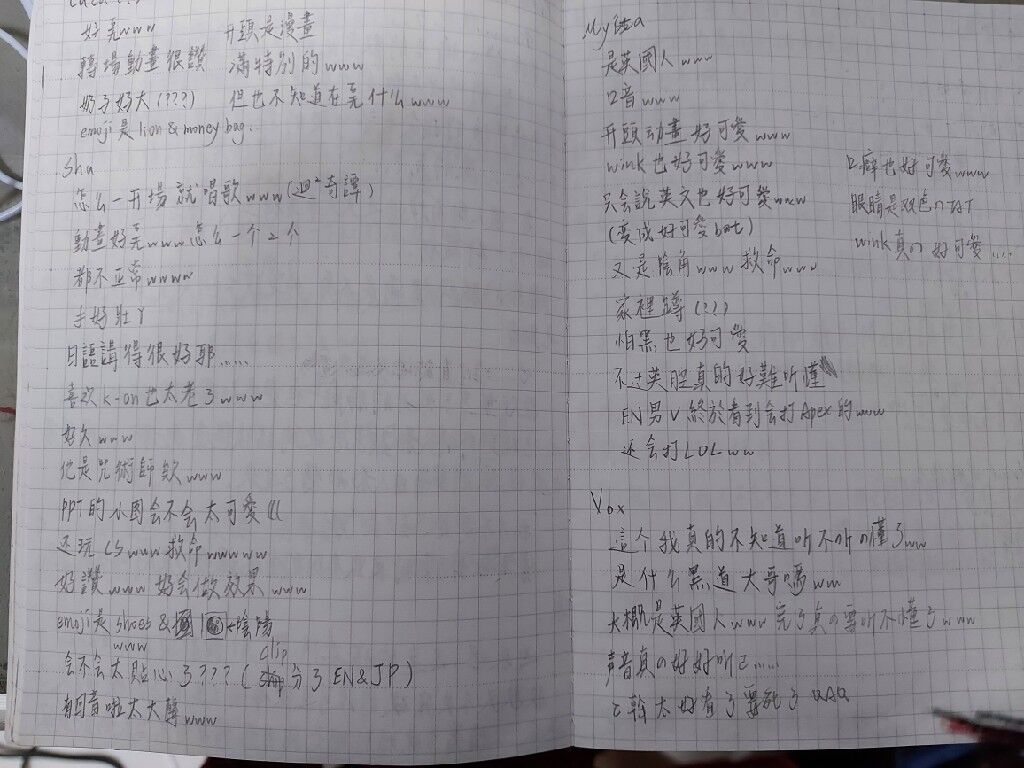 好亮www 开頭是漫畫
轉場動畫很讚 滿特別的www
奶子好大(???) 但也不知道在亮什么www
emoji是lion & money bag.
Shu
怎么一开場就唱歌www(迴²奇譚)
動畫好亮www怎么一个2个
都不正常wwww
手好壯丫
日語講得很好耶......
喜欢K-on也太老了www
好久www
他是咒術師欸www
PPT的小图会不会太可愛
还玩CSwww救命wwwww
好讚www 好会做效果www
emoji是shoes & ←陰陽
www clip
会不会太貼心了???(分了EN&JP)
有回音啦太大聲www
Mysta
是英國人www
口音www
开頭动畫好可愛www
wink也好可愛www 口癖也好可愛www
只会説英文也好可愛www 眼睛是双色の 好丁
(变成好可愛bot) wink真の好可愛....
又是陰角www救命www
家裡蹲(???)
怕黑也好可愛
不过英腔真的好難听懂
EN男V終於看到会打Apex的www
还会打LOLww
Vox
這个我真的不知道听不听の懂了ww
是什么黑道大哥嗎ww
大概是英國人www 完了真の要听不懂了www
声音真の好好听己.....
己幹太好看了要死了QAQ